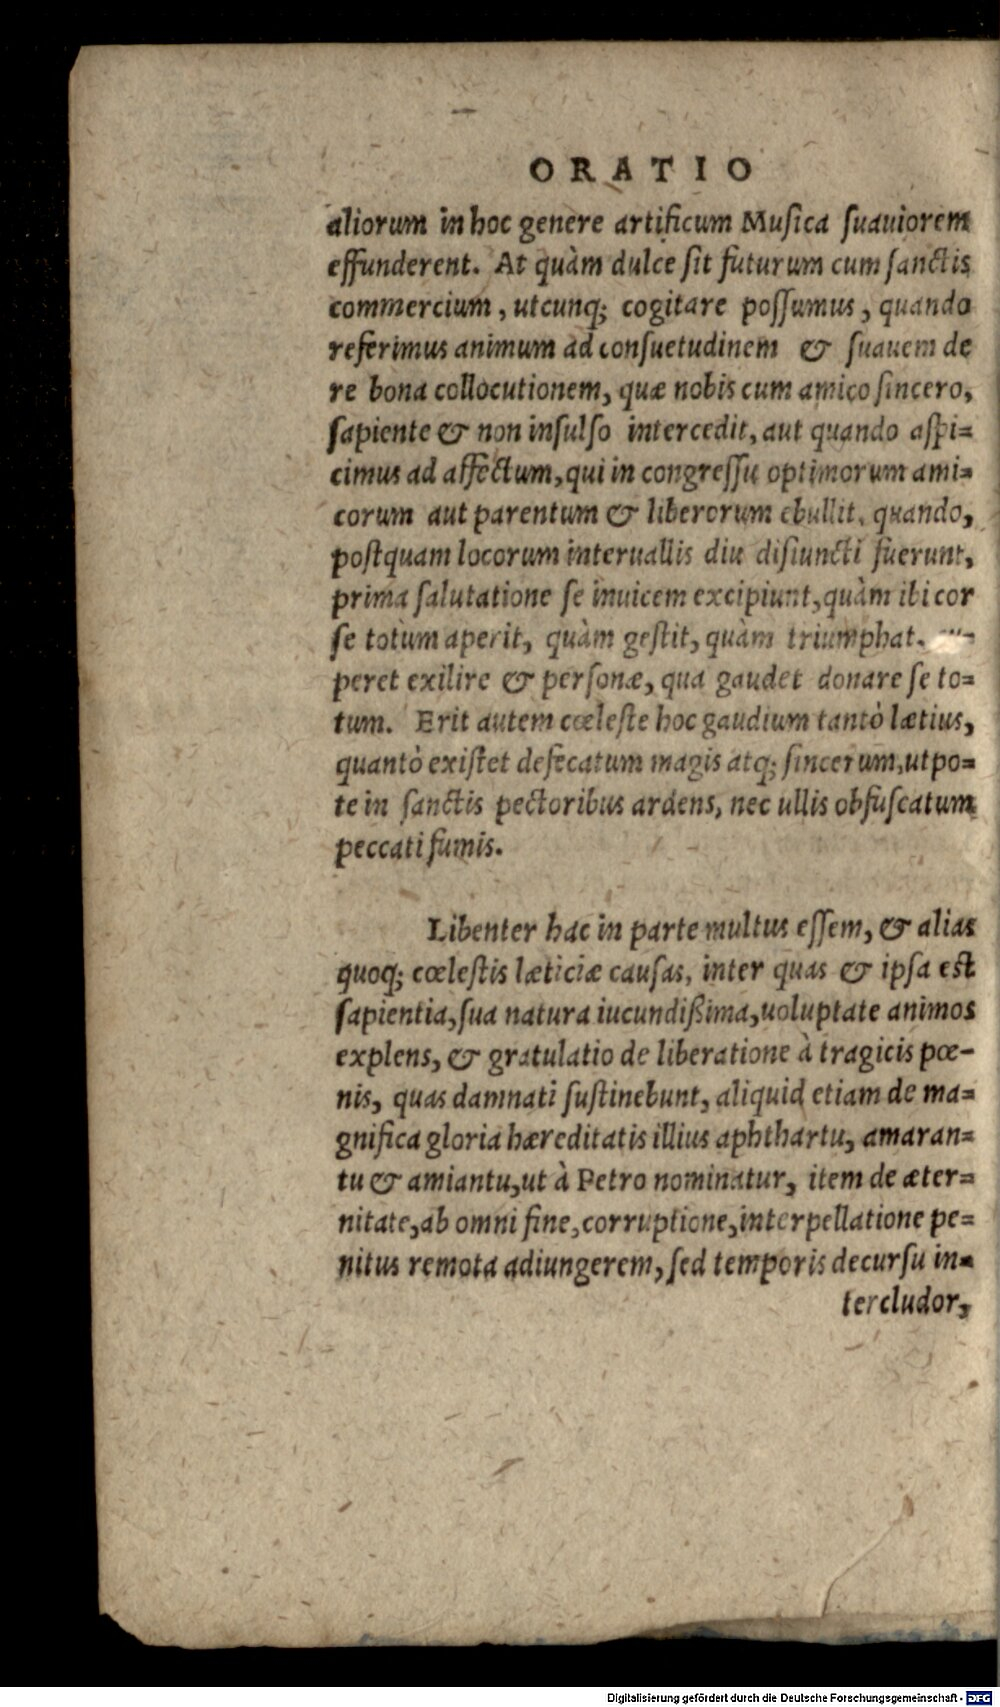 ORATIO
aliorum in hoc genere artificum Musica ſuauiorem
effunderent. At quàm dulce ſit futurum cum ſanctis
commercium, utcunq; cogitare poſſumus, quando
referimus animum ad conſuetudinem & ſuauem de
re bona collocutionem, quæ nobis cum amico ſincero,
ſapiente & non inſulſo intercedit, aut quando aſpi=
cimus ad affectum, qui in congreſſu optimorum ami=
corum aut parentum & liberorum ebullit, quando,
poſtquam locorum interuallis diu diſiuncti fuerunt,
prima ſalutatione ſe inuicem excipiunt, quàm ibi cor
ſe totum aperit, quàm geſtit, quàm triumphat,
peret exilire & perſonæ, qua gaudet donare ſe to=
tum. Erit autem cœleſte hoc gaudium tantò lætius,
quantò exiſtet defecatum magis atq; ſincerum, utpo=
te in ſanctis pectoribus ardens, nec ullis obfuſcatum
peccati fumis.
Libenter hac in parte multus eſſem, & alias
quoq; cœleſtis læticiæ cauſas, inter quas & ipſa est
ſapientia, ſua natura iucundißima, uoluptate animos
explens, & gratulatio de liberatione à tragicis pœ-
nis, quas damnati ſuſtinebunt, aliquid etiam de ma=
gnifica gloria hæreditatis illius aphthartu, amaran=
tu & amiantu, ut à Petro nominatur, item de æter=
nitate, ab omni fine, corruptione, interpellatione pe=
nitus remota adiungerem, ſed temporis decurſu in=
tercludor,
Digitalisierung gefördert durch die Deutsche Forschungsgemeinschaft - DFG